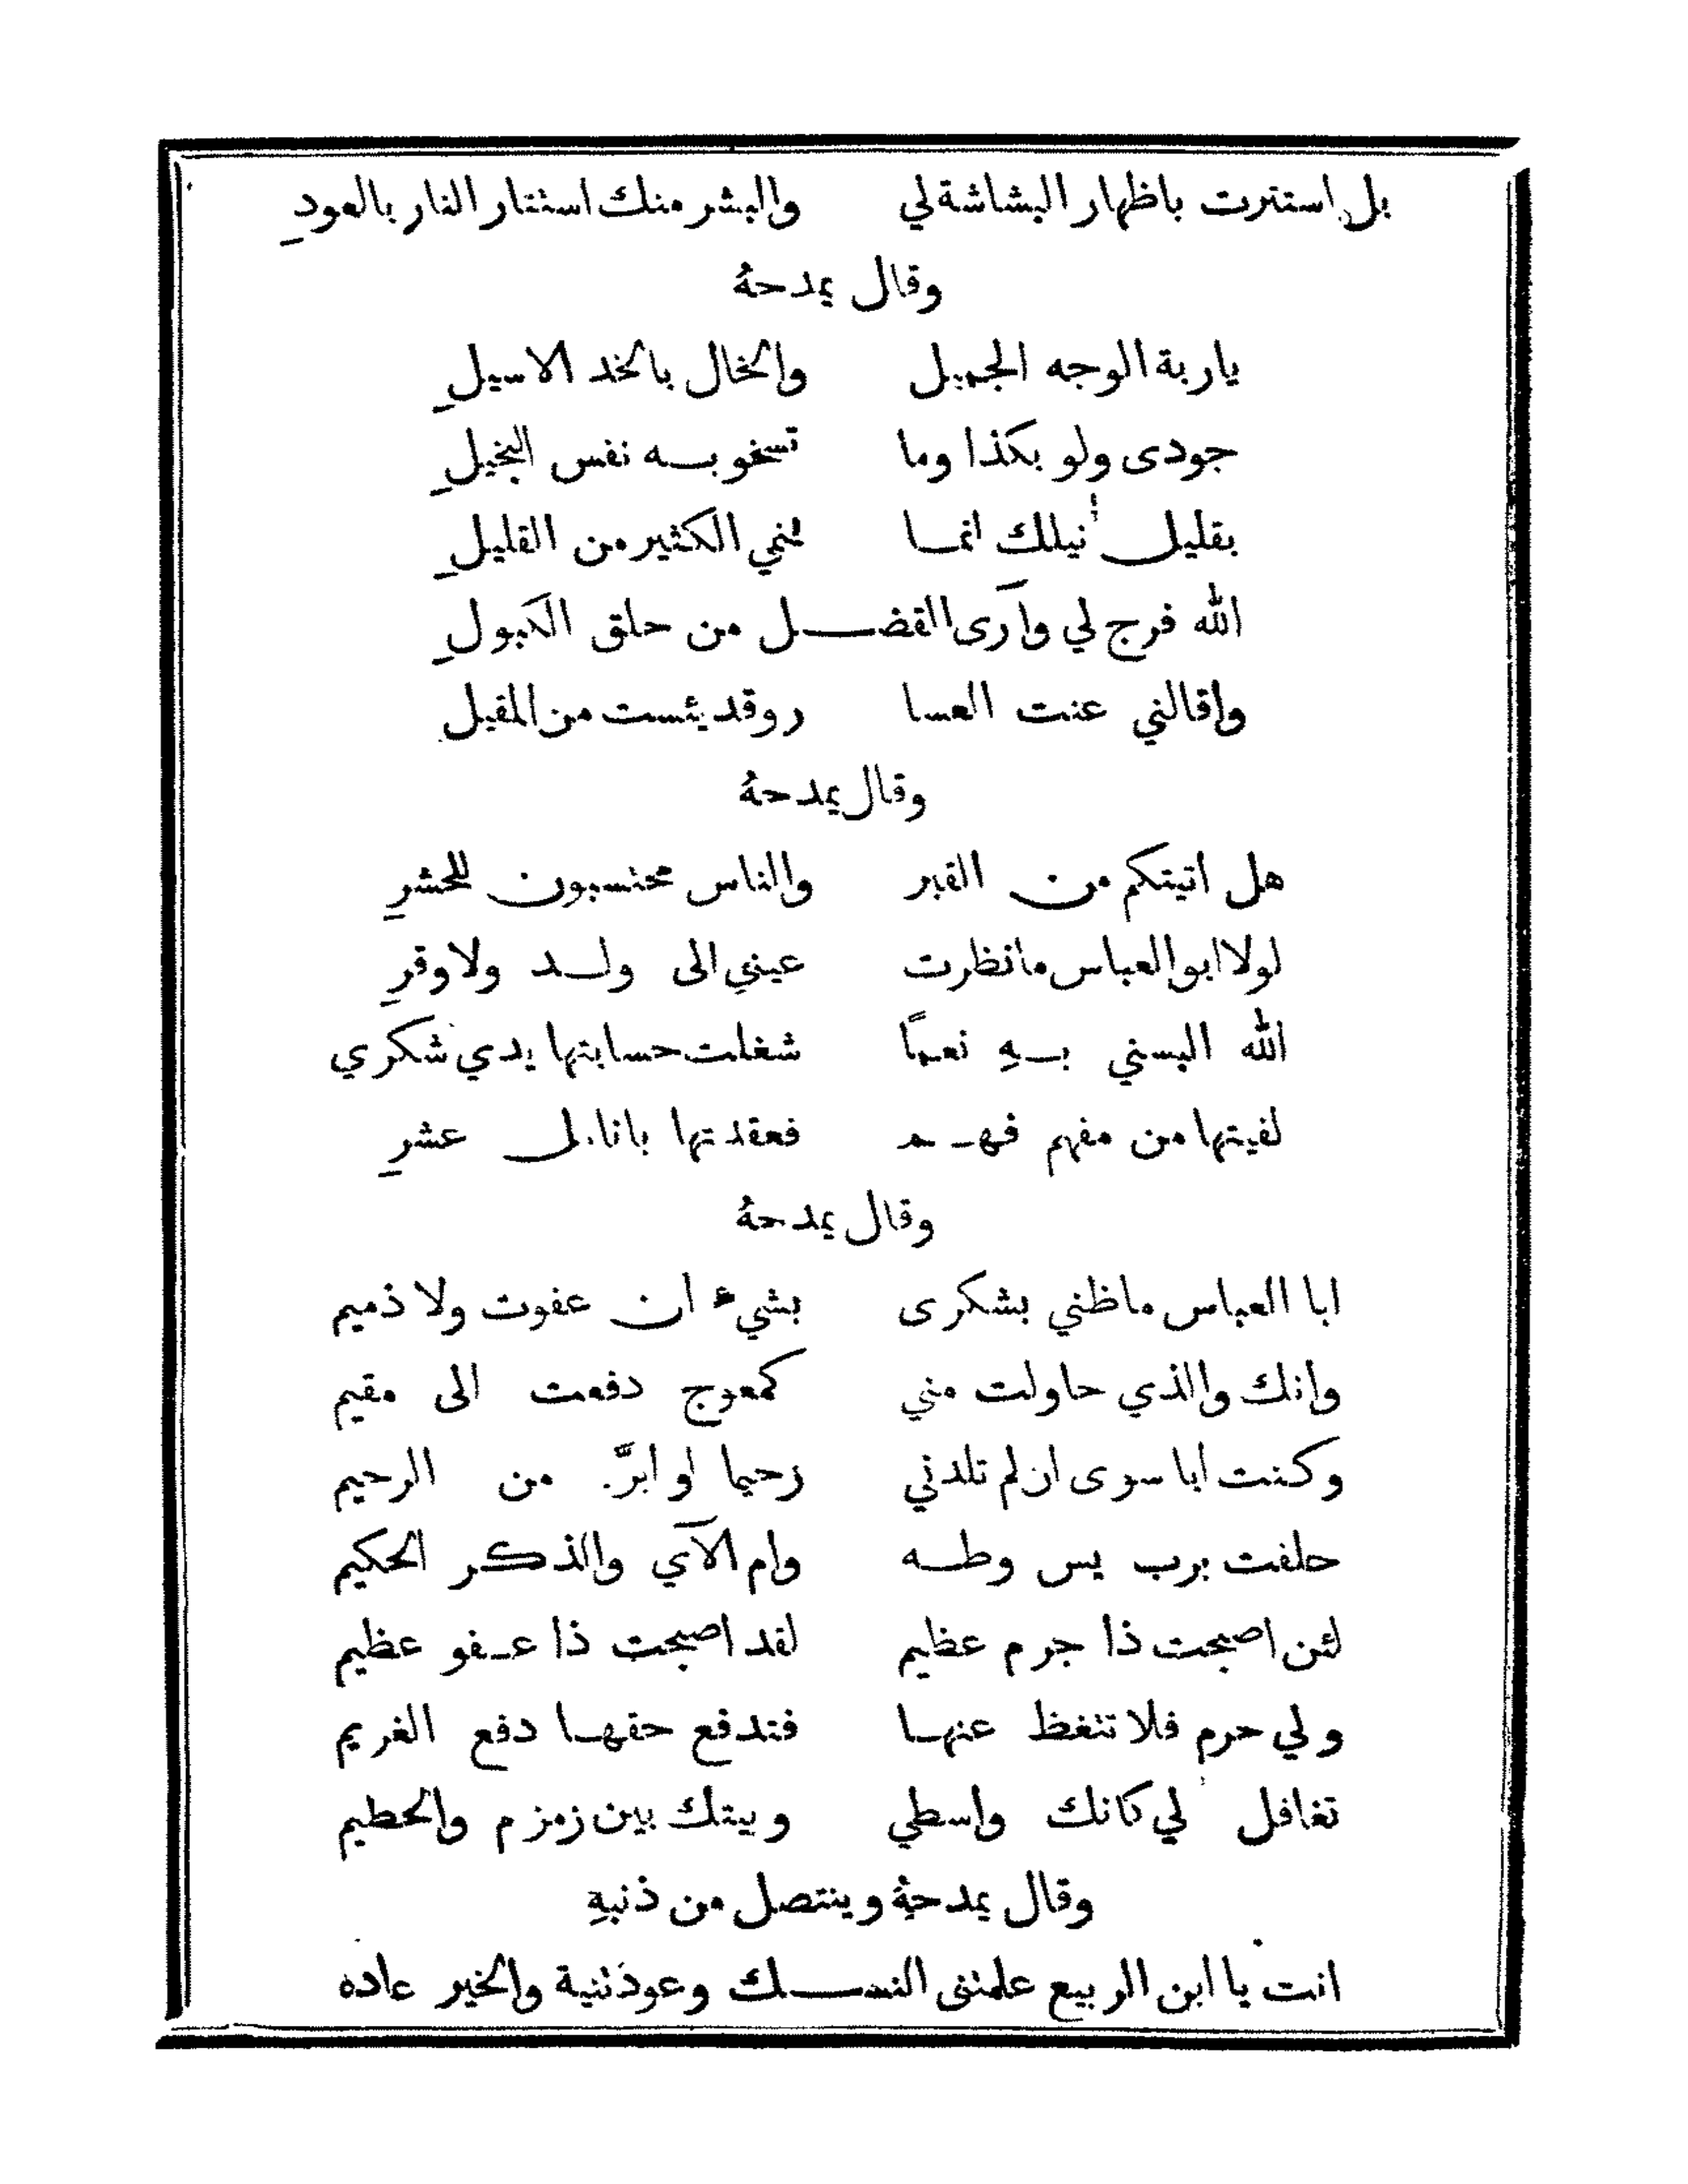 بل استترت باظهار البشاشة لي والبشر منك استتار النار بالعودِ
وقال يمدحهُ
ياربة الوجه الجميل والخال بالخد الاسيلِ
جودى ولو بكذا وما تسخو بـه نفس البخيلِ
بقليل نيلك انمـا ينمي الكثير من القليلِ
الله فرج لي وآرى الفضـل من حلق الكبولِ
واقالني عنت العسا ر وقد يئست من المقيل
وقال يمدحهُ
هل اتيتكم من القبر والناس محتسبون للحشرِ
لولا ابو العباس مانظرت عيني الى ولـد ولا وقرِ
الله البسني بـهِ نعماً شغلت حسابتها يدي شكري
لفيتها من مفهم فهـم فعقدتها بانامل عشرِ
وقال يمدحهُ
ابا العباس ماظني بشكرى بشيء ان عفوت ولا ذميم
وانك والذي حاولت مني كمعوج دفعت الى مقيم
وكنت ابا سوى ان لم تلدني رحيما او ابرَّ من الرحيم
حلفت برب يس وطـه وام الآي والذكر الحكيم
لئن اصبحت ذا جرم عظيم لقد اصبحت ذا عـفو عظيم
ولي حرم فلا تتغظ عنهـا فتدفع حقهـا دفع الغريم
تغافل لي كانك واسطي وبيتك بين زمزم والحطيم
وقال يمدحهُ وينتصل من ذنبهِ
انت يا ابن الربيع علمتنى النسـك وعوذتنية والخير عاده